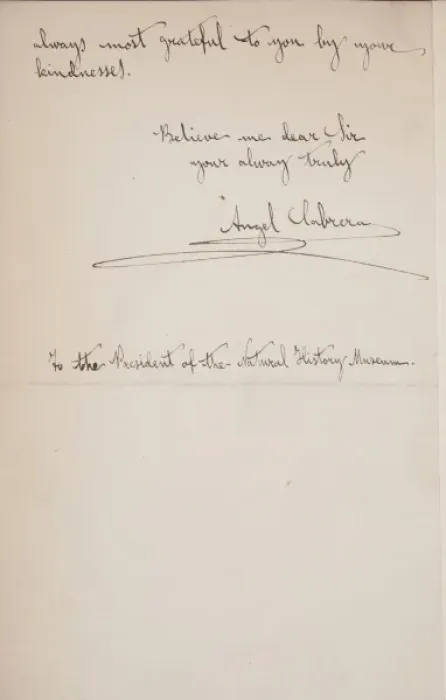 always most grateful to you by your
kindnesses.
Believe me dear Sir
your alway truly
Angel Cabrera
To the President of the Natural History Museum.